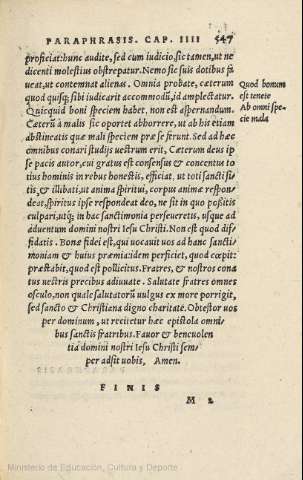 PARAPHRASIS. CAP. IIII 547
proficiat: hunc audite, sed cum iudicio, sic tamen, ut ne
dicenti molestius obstrepatur. Nemo sic suis dotibus fa
ueat, ut contemnat alienas. Omnia probate, cæterum
quod quisq; sibi iudicarit accommodũ, id amplectatur.
Quod bonum
est tenete
Quicquid boni speciem habet, non est aspernandum.
Ab omni spe
cie mala
Cæterũ à malis sic oportet abhorrere, ut ab his etiam
abstineatis quæ mali speciem præ se ferunt. Sed ad hæc
omnibus conari studijs uestrum erit, Cæterum deus ip
se pacis autor, cui gratus est consensus & concentus to
tius hominis in rebus honestis, efficiat, ut toti sancti si
tis & illibati, ut anima spiritui, corpus animæ respon
deat, spiritus ipse respondeat deo, ne sit in quo possitis
culpari, utq; in hac sanctimonia perseueretis, usque ad
aduentum domini nostri Iesu Christi. Non est quod dif
fidatis. Bonæ fidei est, qui uocauit uos ad hanc sancti
moniam & huius præmia: idem perficiet, quod cœpit:
præstabit, quod est pollicitus. Fratres, & nostros cona
tus uestris precibus adiuuate. Salutate fratres omnes
osculo, non quale salutatorũ uulgus ex more porrigit,
sed sancto & Christiana digno charitate. Obtestor uos
per dominum, ut recitetur hæc epistola omni
bus sanctis fratribus. Fauor & beneuolen
tia domini nostri Iesu Christi sem
per adsit uobis, Amen.
FINIS
M 2
Ministerio de Educación, Cultura y Deporte